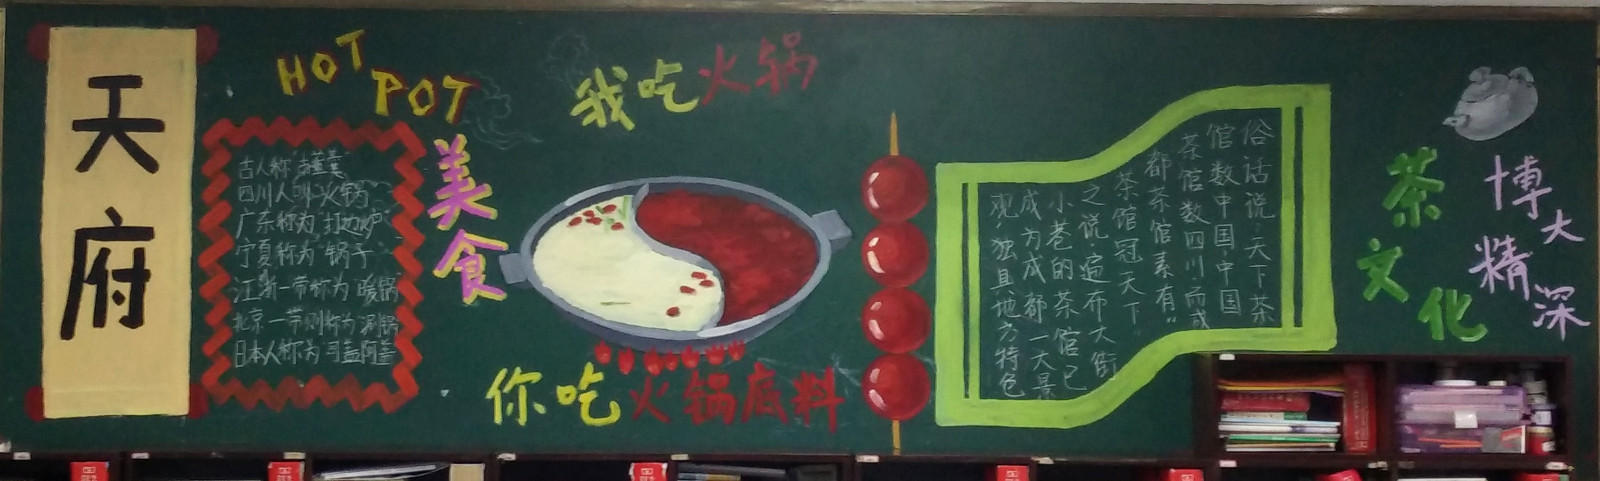 天府
HOT POT
美食
古人称"古董羹"
四川人叫"火锅"
广东称为"打边炉"
宁夏称为"锅子"
江浙一带称为"暖锅"
北京一带则称为"涮锅"
日本人称为"司盖阿盖"
我吃火锅
你吃火锅底料
俗话说,天下茶
馆数中国,中国
茶馆数四川而成
都茶馆素有"
茶馆冠天下"
之说,遍布大街
小巷的茶馆已
成为成都一大景
观,独具地方特色
茶文化
博大
精深